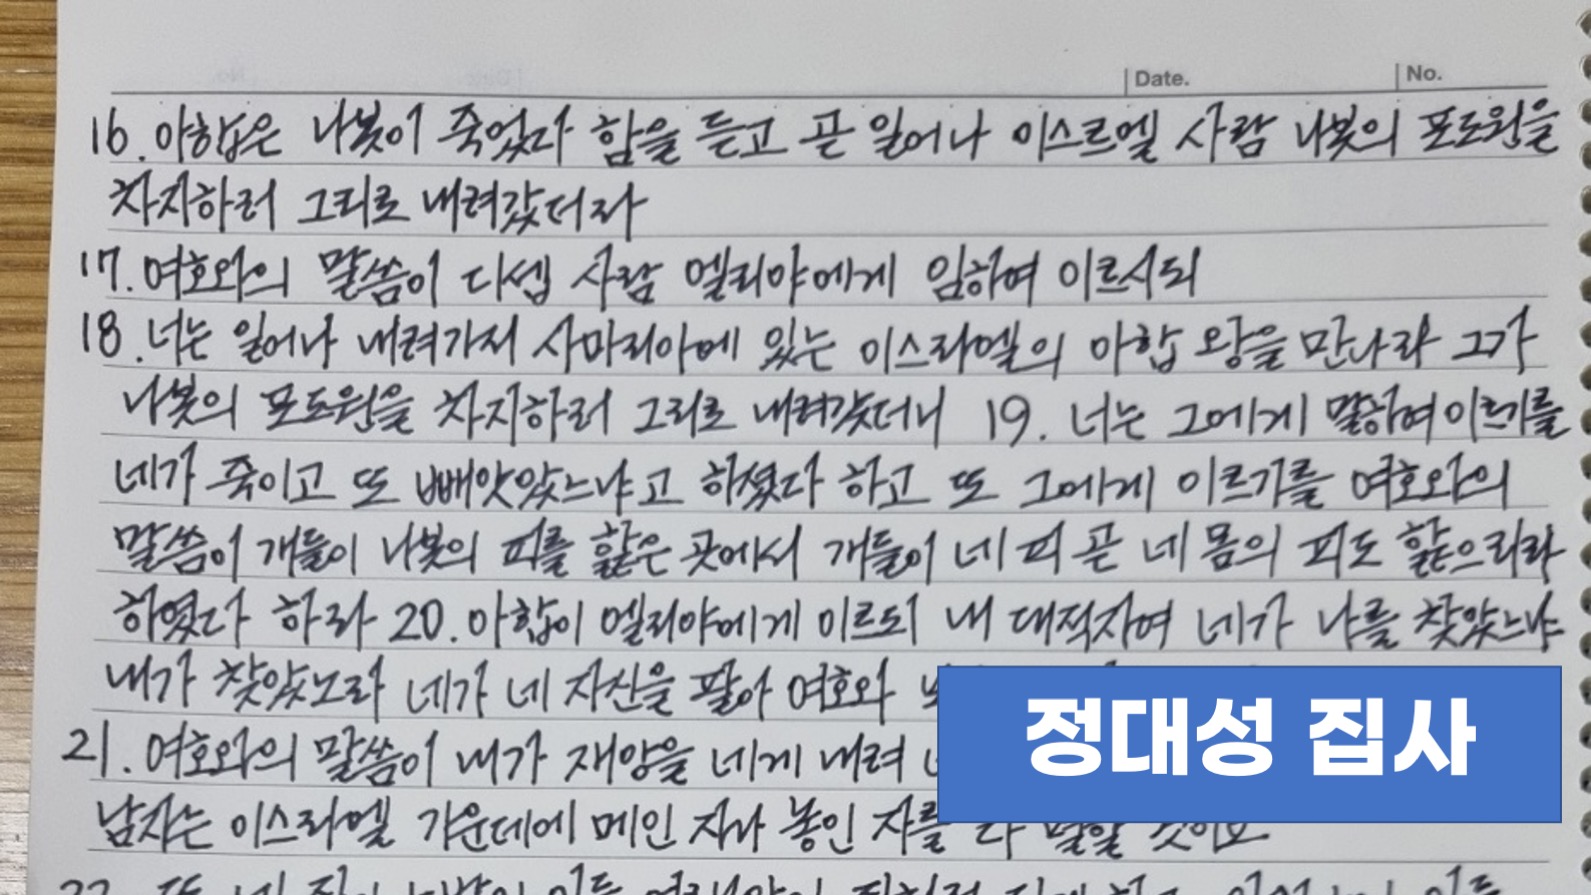 Date. No.
16. 아합은 나봇이 죽었다 함을 듣고 곧 일어나 이스르엘 사람 나봇의 포도원을
차지하러 그리로 내려갔더라
17. 여호와의 말씀이 디셉 사람 엘리야에게 임하여 이르시되
18. 너는 일어나 내려가서 사마리아에 있는 이스라엘의 아합 왕을 만나라 그가
나봇의 포도원을 차지하러 그리로 내려갔더니 19. 너는 그에게 말하여 이르기를
네가 죽이고 또 빼앗았느냐고 하셨다 하고 또 그에게 이르기를 여호와의
말씀이 개들이 나봇의 피를 핥은 곳에서 개들이 네 피 곧 네 몸의 피도 핥으리라
하였다 하라 20. 아합이 엘리야에게 이르되 내 대적자여 네가 나를 찾았느냐
내가 찾았노라 네가 네 자신을 팔아 여호와
정대성 집사
21. 여호와의 말씀이 내가 재앙을 네게 내려
남자는 이스라엘 가운데에 매인 자나 놓인 자를 다 멸할 것이요